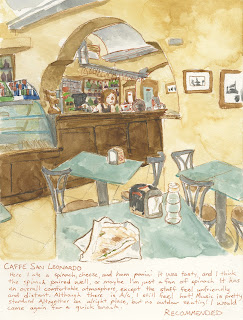 CAFFE SAN LEONARDO
Here I ate a spinach, cheese, and ham panini. It was tasty and I think
the spinach paired well, or maybe I'm just a fan of spinach. It has
an overall comfortable atmosphere, except the staff feel unfriendly
and distant. Although there is A/C, I still feel hot! Music is pretty
standard. Altogether an alright place, but no outdoor seating. I would
come again for a quick brunch.
RECOMMENDED